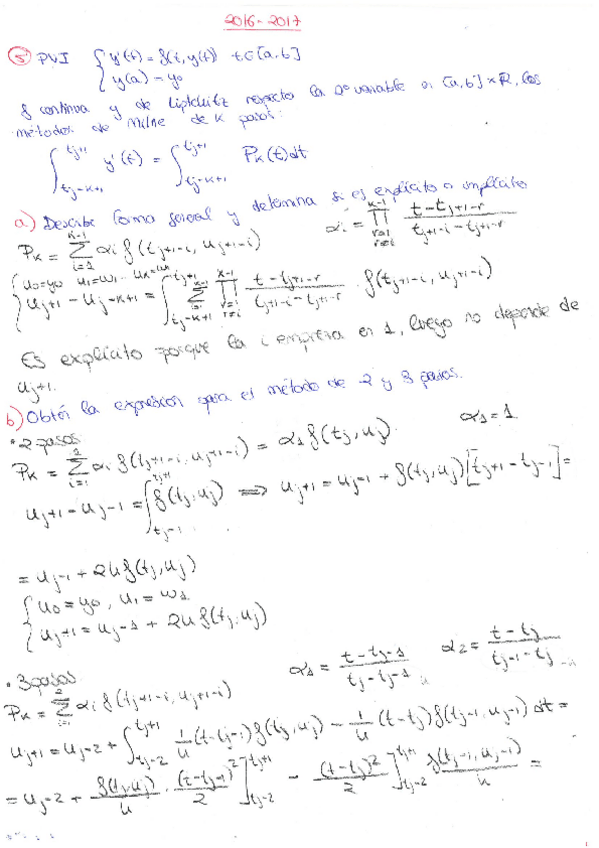 2016-2017
5 PVI { y'(t) = f(t, y(t)) t∈[a,b]
y(a) = y₀
f continua y de Lipschitz respecto la 2ª variable en [a,b]×ℝ, los
métodos de Milne de K pasos:
∫_{tj-k+1}^{tj+1} y'(t) = ∫_{tj-k+1}^{tj+1} P_K(t)dt
a) Describe forma general y determina si es explícito o implícito
P_K = Σ_{i=1}^{K-1} αi f(tj+1-i, uj+1-i) αi = Π_{r=1, r≠i}^{K-1} (t - tj+1-r)/(tj+1-i - tj+1-r)
{ u₀=y₀ u₁=w₁
uj+1 - uj-k+1 = ∫_{tj-k+1}^{tj+1} Σ_{i=1}^{K-1} Π_{r=1, r≠i}^{K-1} (t - tj+1-r)/(tj+1-i - tj+1-r) · f(tj+1-i, uj+1-i)
Es explícito porque la i empieza en 1, luego no depende de
uj+1.
b) Obtén la expresión para el método de 2 y 3 pasos.
• 2 pasos α₁=1
P_K = Σ_{i=1} αi f(tj+1-i, uj+1-i) = α₁ f(tj, uj)
uj+1 - uj-1 = ∫_{tj-1}^{tj+1} f(tj, uj) ⟹ uj+1 = uj-1 + f(tj, uj)[tj+1 - tj-1] =
= uj-1 + 2h f(tj, uj)
{ u₀ = y₀, u₁ = w₁
uj+1 = uj-1 + 2h f(tj, uj)
• 3 pasos α₁ = (t - tj-1)/(tj - tj-1) α₂ = (t - tj)/(tj-1 - tj)
P_K = Σ_{i=1}^{2} αi f(tj+1-i, uj+1-i)
uj+1 = uj-2 + ∫_{tj-2}^{tj+1} 1/h (t - tj-1) f(tj, uj) - 1/h (t - tj) f(tj-1, uj-1) dt =
= uj-2 + f(tj, uj)/h · (t - tj-1)²/2 ]_{tj-2}^{tj+1} - (t - tj)²/2 ]_{tj-2}^{tj+1} f(tj-1, uj-1)/h =